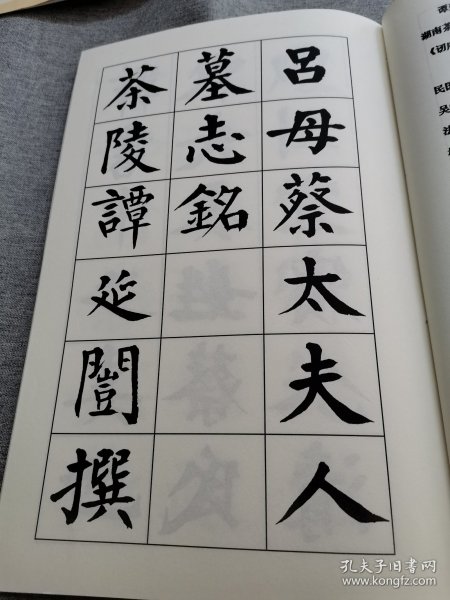 呂母蔡太夫人
墓志銘
茶陵譚延闓撰
譚
湖南茶
民國
吳
孔夫子旧书网
www.kongfz.com